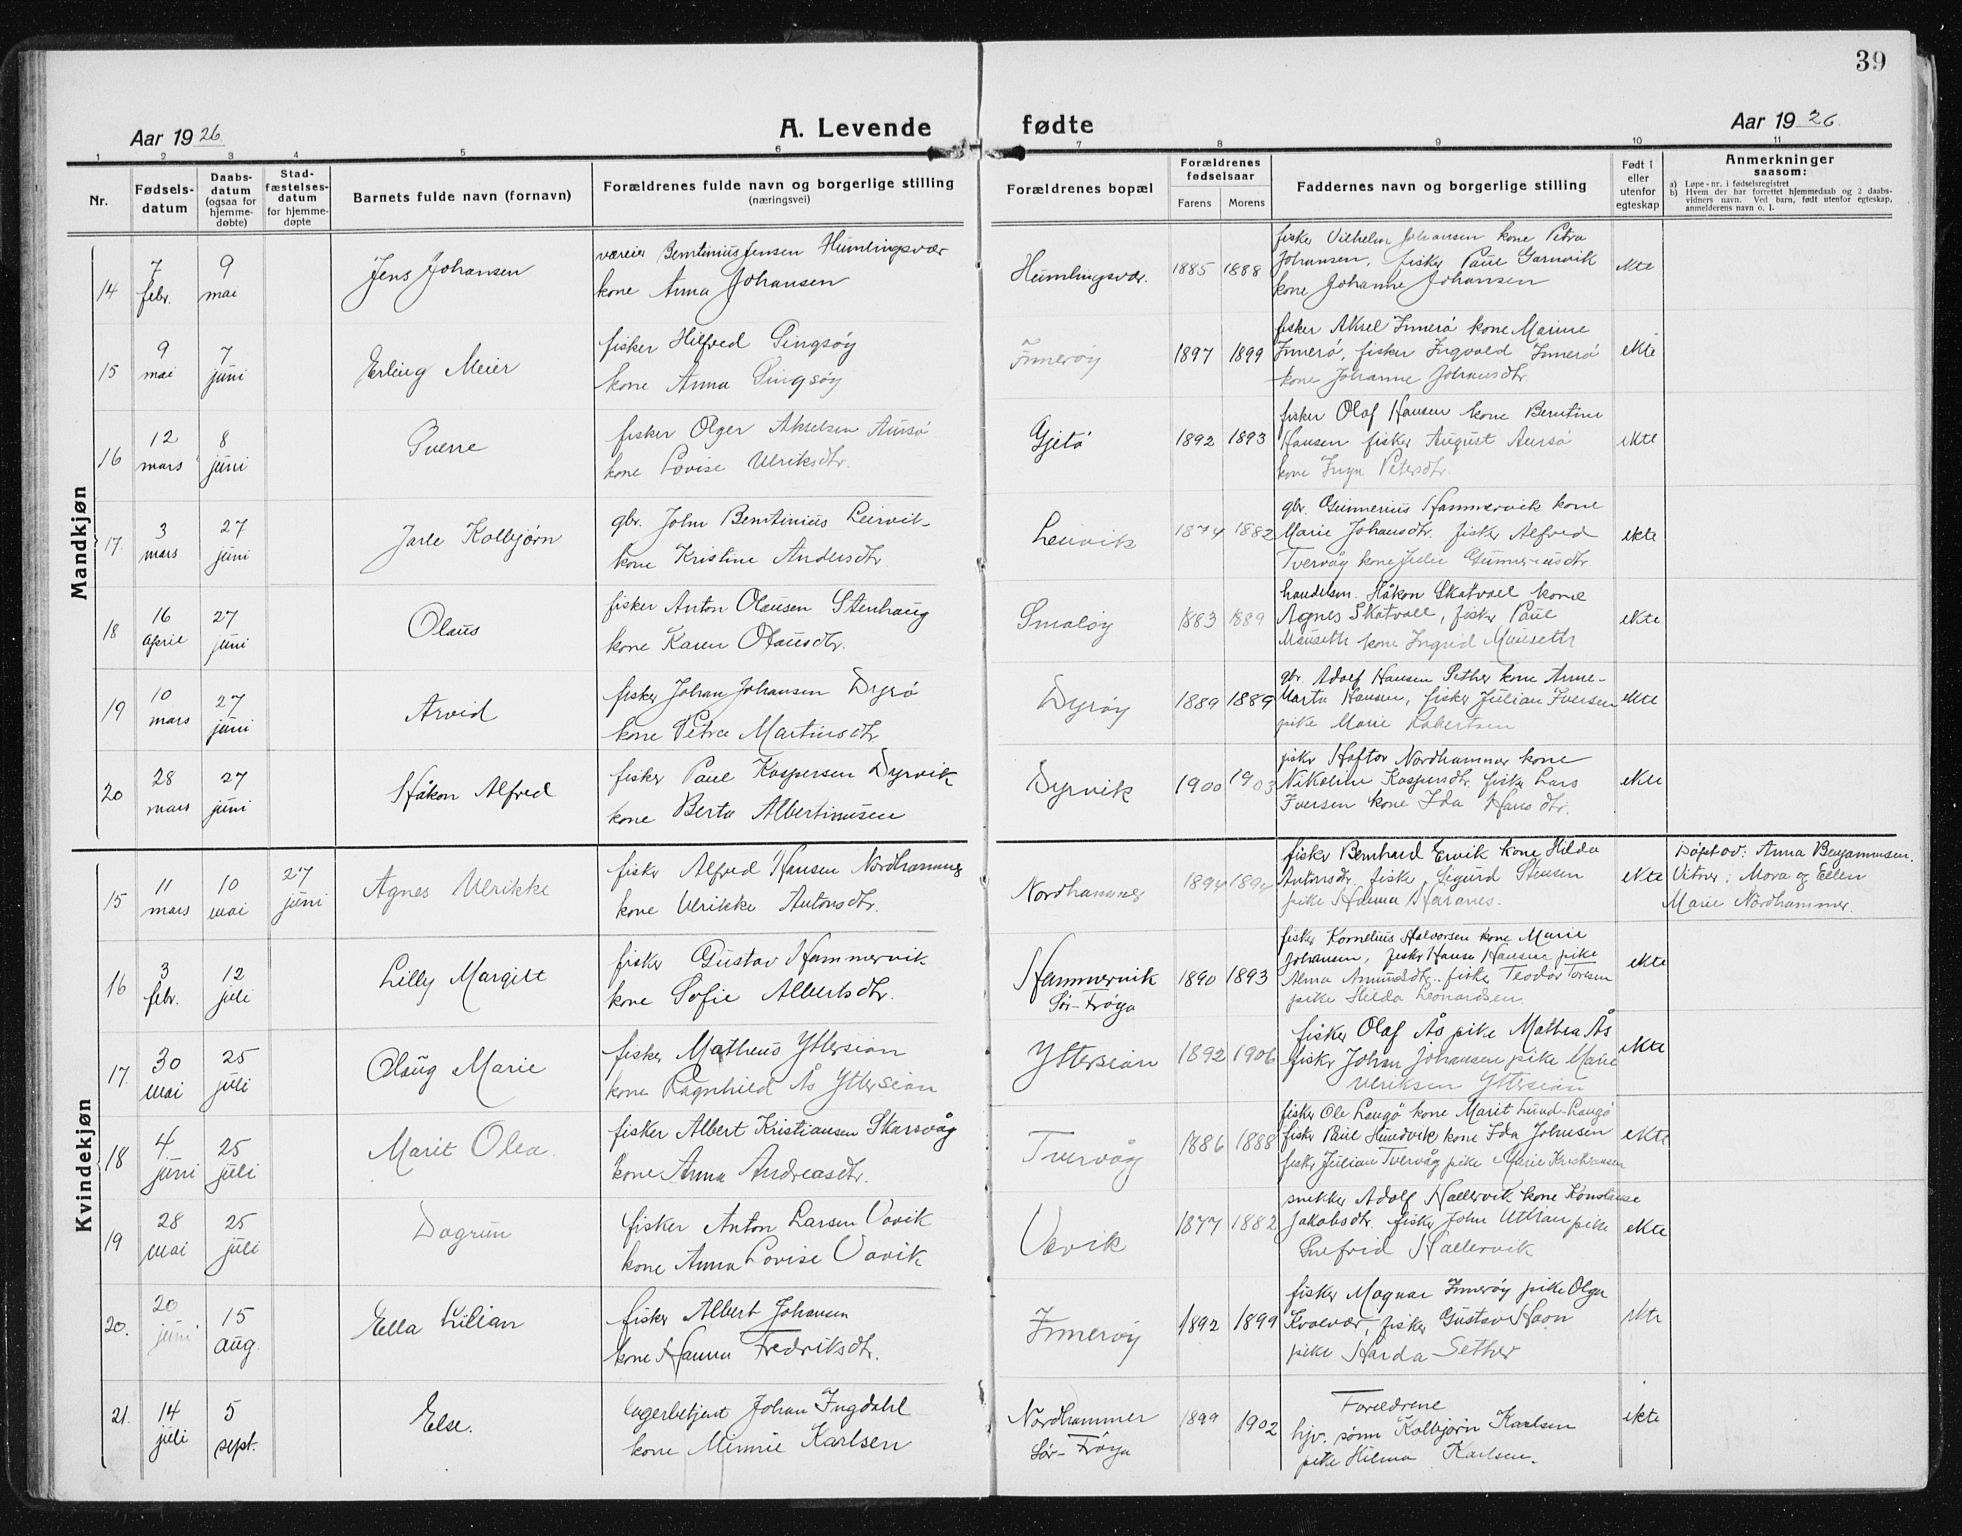 39
Aar 1926
A. Levende
fødte
Aar 1926
1 2 3 4 5 6 7 8 9 10 11
Nr.
Fødsels-
datum
Daabs-
datum
(ogsaa for
hjemme-
døbte)
Stad-
fæstelses-
datum
for hjemme-
døpte
Barnets fulde navn (fornavn)
Forældrenes fulde navn og borgerlige stilling
(næringsvei)
Forældrenes bopæl
Forældrenes
fødselsaar
Farens Morens
Faddernes navn og borgerlige stilling
Født i
eller
utenfor
egteskap
Anmerkninger
saasom:
a) Løpe-nr. i fødselsregistret
b) Hvem der har forrettet hjemmedaab og 2 daabs-
vidners navn. Ved barn, født utenfor egteskap,
anmelderens navn o. l.
Mandkjøn
14
7
febr.
9
mai
Jens Johansen
væreier Berntinius Jensen Humlingsvær
kone Anna Johansen
Humlingsvær.
1885 1888
fisker Vilhelm Johansen kone Petra
Johansen, fisker Paul Garnvik
kone Johanne Johansen
ekte
15
9
mai
7
juni
Erling Meier
fisker Hilfred Gingsøy
kone Anna Gingsøy
Innerøy
1897 1899
fisker Aksel Innerø kone Marine
Innerø, fisker Ingvald Innerø
kone Johanne Johansdtr.
ekte
16
12
mars
8
juni
Sverre
fisker Olger Akselsen Aursø
kone Lovise Ulriksdtr.
Gjetø
1892 1893
fisker Olaf Hansen kone Berntine
Hansen fisker August Aursø
kone Inga Petersdtr.
ekte
17.
3
mars
27
juni
Jarle Kolbjørn
gbr. John Berntinius Leirvik
kone Kristine Andersdtr.
Leirvik
1874 1882
gbr. Gunnerius Hammervik kone
Marie Johansdtr. fisker Alfred
Tvervåg kone Julie Gunneriusdtr
ekte
18
16
april
27
juni
Olaus
fisker Anton Olausen Stenhaug
kone Karen Olausdtr.
Smaløy
1883 1889
handelsm. Håkon Skatvall kone
Agnes Skatvall, fisker Paul
Mauseth kone Ingrid Mauseth
ekte
19
10
mars
27
juni
Arvid
fisker Johan Johansen Dyrø
kone Petra Martinsdtr
Dyrøy
1889 1889
gbr. Adolf Hansen Sether kone Anne-
Marta Hansen, fisker Julian Iversen
pike Marie Robertsen
ekte
20
28
mars
27
juni
Håkon Alfred
fisker Paul Kaspersen Dyrvik
kone Berta Albertinusen
Dyrvik
1900 1903
fisker Haftor Nordhammer kone
Nikoline Kaspersdtr. fisker Lars
Iversen kone Ida Hansdtr.
ekte
Kvindekjøn
15
11
mars
10
mai
27
juni
Agnes Ulrikke
fisker Alfred Hansen Nordhammer
kone Ulrikke Antonsdtr.
Nordhammer
1894 1894
fisker Bernhard Ervik kone Hilda
Antonsdtr. fisker Sigurd Stensen
pike Halma Haranes.
ekte
Døpt av: Anna Benjaminsen.
Vitner: Mora og Ellen
Marie Nordhammer.
16
3
febr.
12
juli
Lilly Margitt
fisker Gustav Hammervik
kone Sofie Albertsdtr.
Hammervik
Sør-Frøya
1890 1893
fisker Kornelius Halvorsen kone Marie
Johansen, fisker Hans Hansen pike
Alma Amundsdtr. fisker Teodor Toresen
pike Hilda Leonardsen.
ekte
17.
30
mai
25
juli
Olaug Marie
fisker Matheus Yttersian
kone Ragnhild Ås Yttersian
Yttersian
1892 1906
fisker Olaf Ås pike Mathea Ås
fisker Johan Johansen pike Marie
Ulriksen Yttersian
ekte
18
4
juni
25
juli
Marit Olea.
fisker Albert Kristiansen Skarsvåg
kone Anna Andreasdtr.
Tvervåg
1886 1888
fisker Ole Langø kone Marit Lund-Langø
fisker Paul Hundvik kone Ida Johnsen
fisker Julian Tvervåg pike Marie Kristiansen
ekte
19
28
mai
25
juli
Dagrun
fisker Anton Larsen Vavik
kone Anna Lovise Vavik
Vavik
1877 1882
snekker Adolf Hallervik kone Konstanse
Jakobsdtr. fisker John Uttian pike
Snefrid Hallervik
ekte
20.
20
juni
15
aug.
Ella Lilian
fisker Albert Johansen
kone Hanna Fredriksdtr.
Innerøy
1892 1899
fisker Magnar Innerøy pike Olga
Kvalvær, fisker Gustav Haon
pike Harda Sether
ekte
21.
14
juli
5
sept.
Else.
lagerbetjent Johan Ingdahl
kone Minnie Karlsen
Nordhammer
Sør-Frøya
1899 1902
Foreldrene
hjv. sønn Kolbjørn Karlsen
pike Hilma Karlsen.
ekte